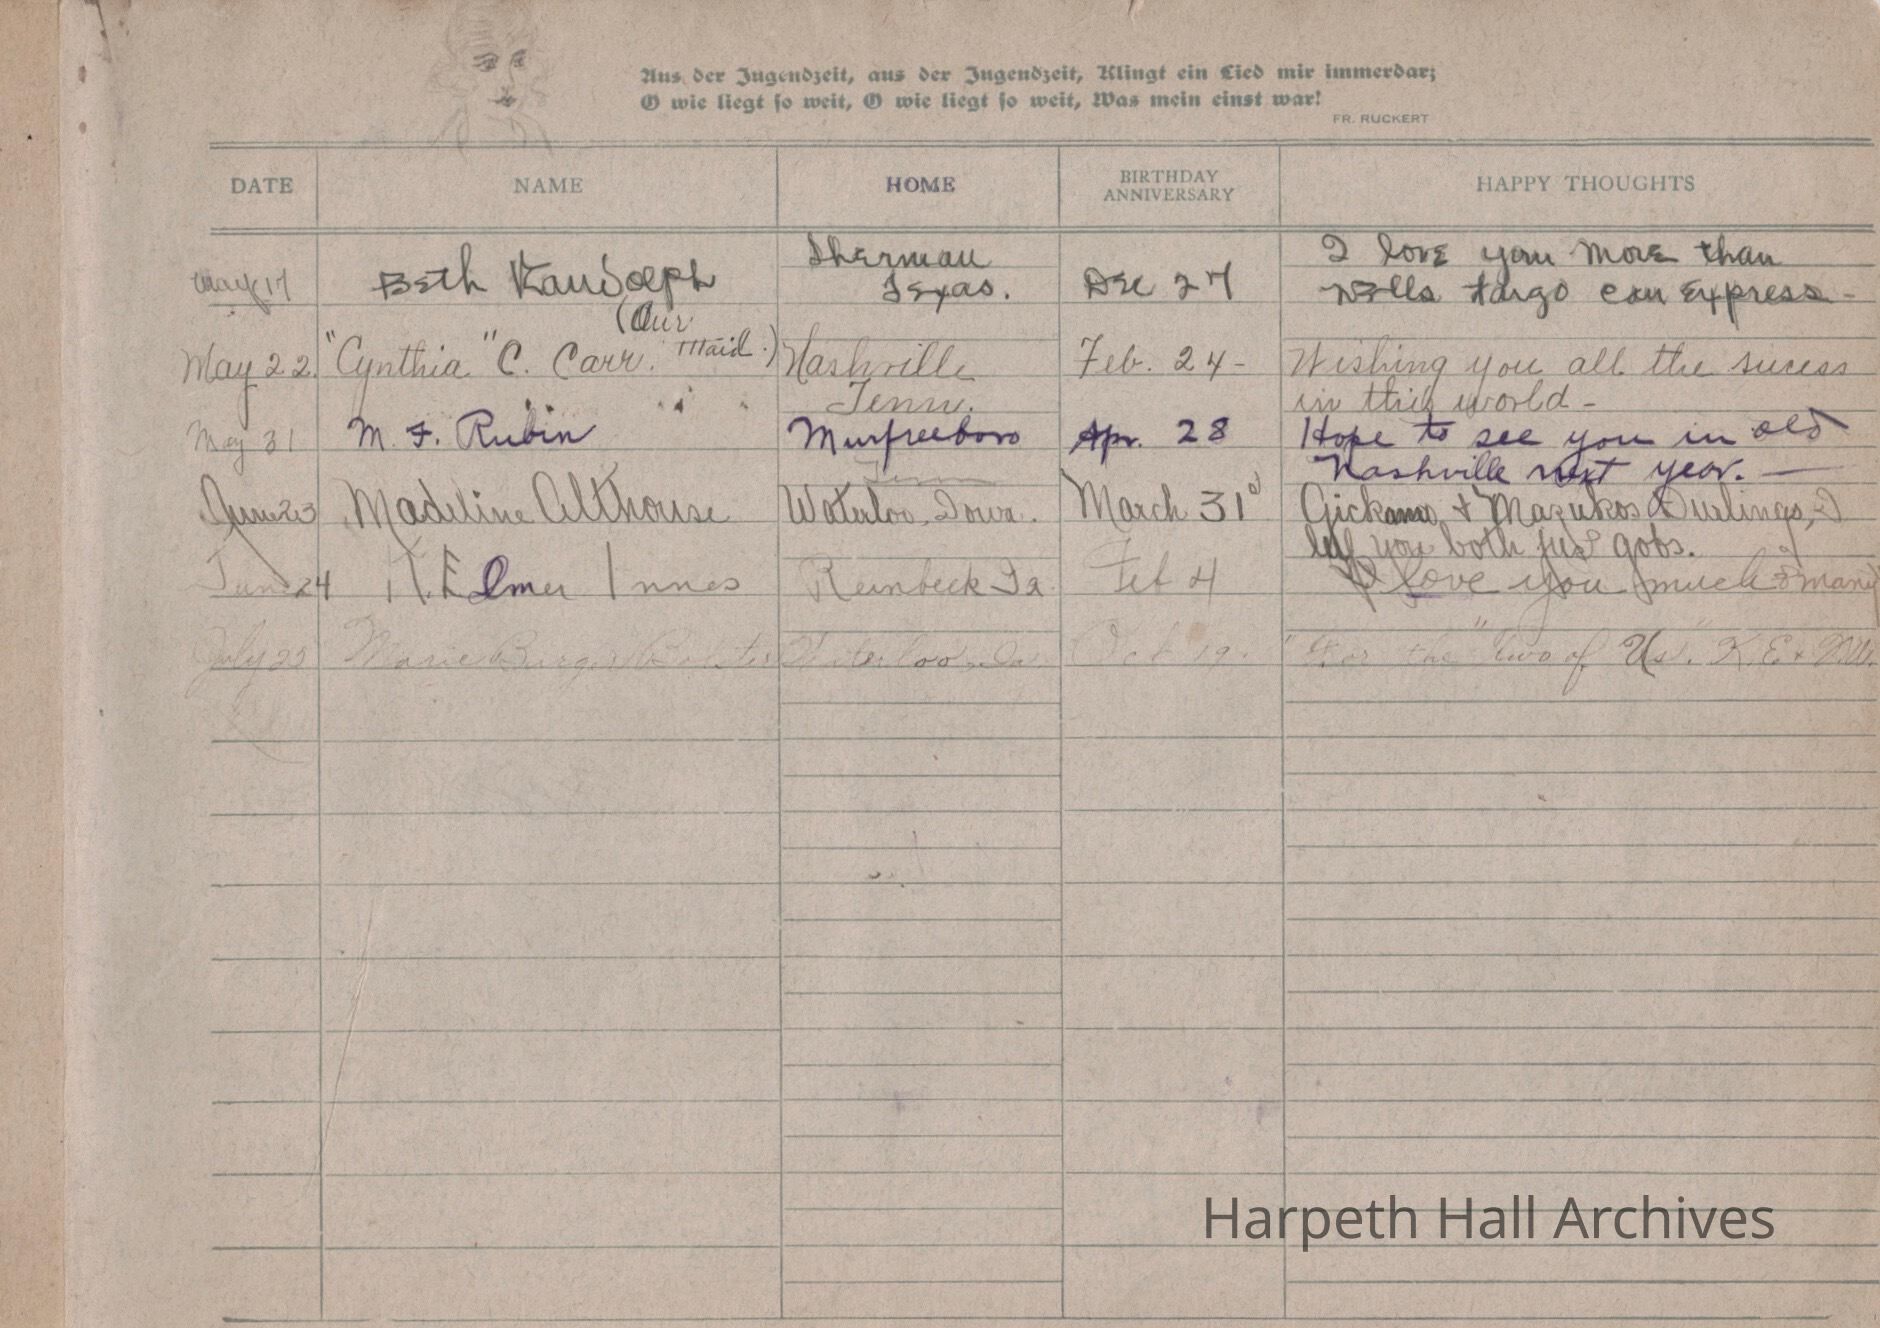 Aus der Jugendzeit, aus der Jugendzeit, Klingt ein Lied mir immerdar;
O wie liegt so weit, O wie liegt so weit, Was mein einst war!
FR. RUCKERT
DATE NAME HOME BIRTHDAY ANNIVERSARY HAPPY THOUGHTS
May 17 Beth Randolph Sherman Texas. Dec 27 I love you more than
Wells Fargo can Express -
May 22. "Cynthia" C. Carr. (Our Maid.) Nashville Tenn. Feb. 24 - Wishing you all the sucess
in this world -
May 31 M. F. Rubin Murfreeboro Tenn Apr. 28 Hope to see you in old
Nashville next year. —
June 23 Madeline Althouse Waterloo, Iowa. March 31 & Durlings, I
you both jus' gobs.
Jun 24 K. Elmer Innes Reinbeck Ia. Feb 4 I love you much & many
July 23 Marie Burger Waterloo, Ia. Oct 19. "For the "two of Us". K. E. &
Harpeth Hall Archives